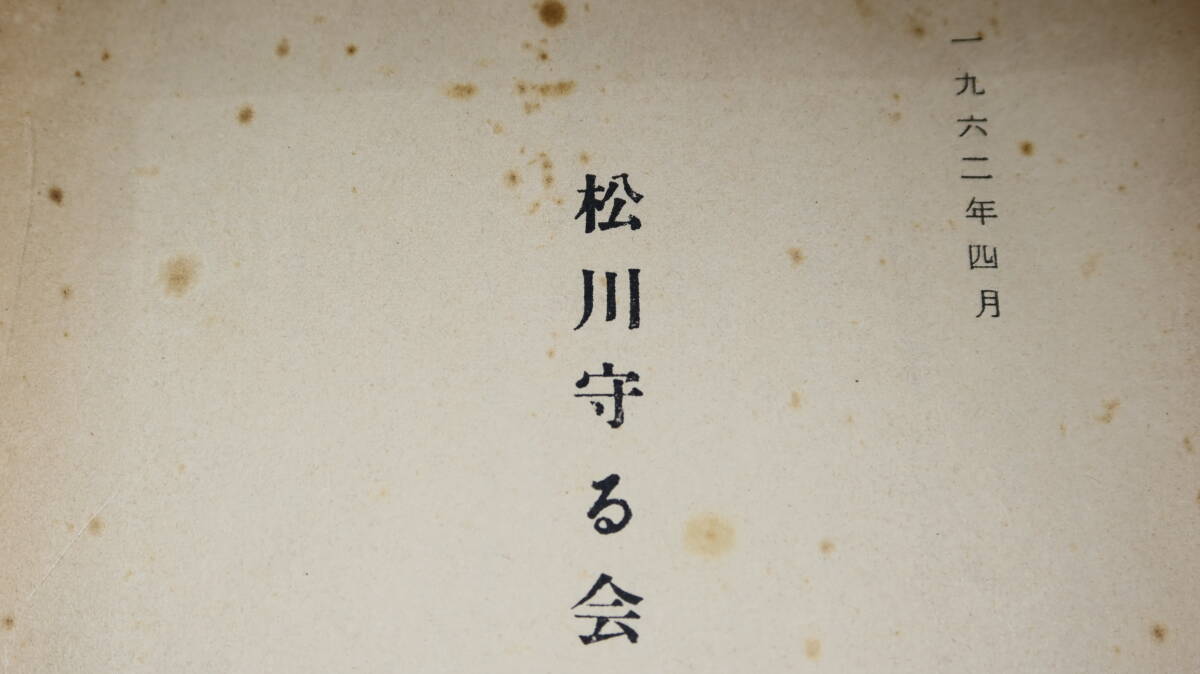 一九六二年四月
松川守る会